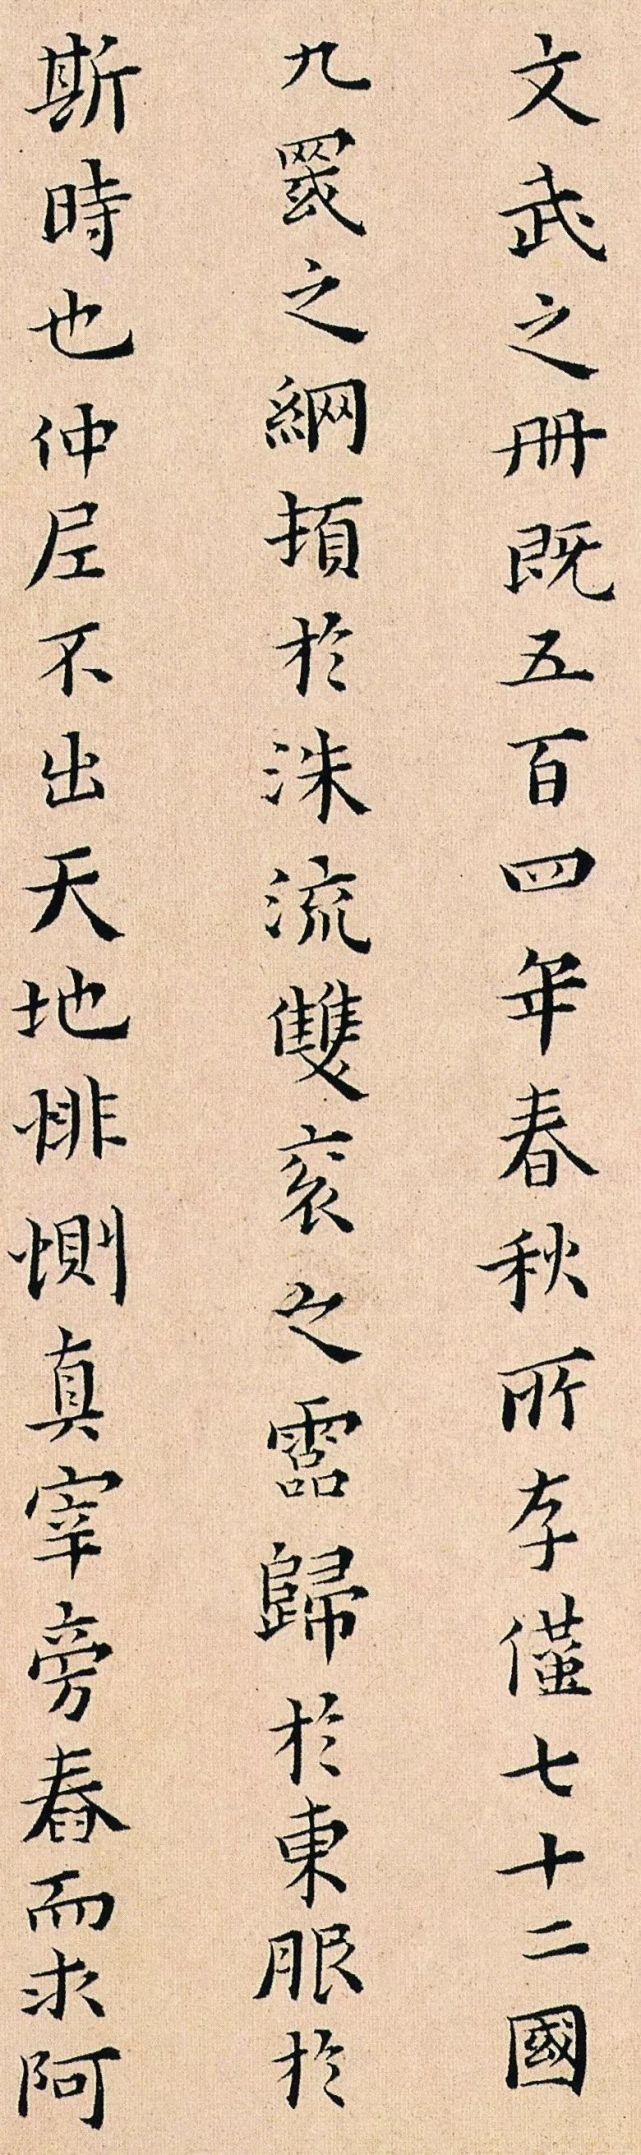 文武之册既五百四年春秋所存僅七十二國
九罭之網頓於洙流雙衮之霝歸於東服於
斯時也仲尼不出天地悱惻真宰旁舂而求阿